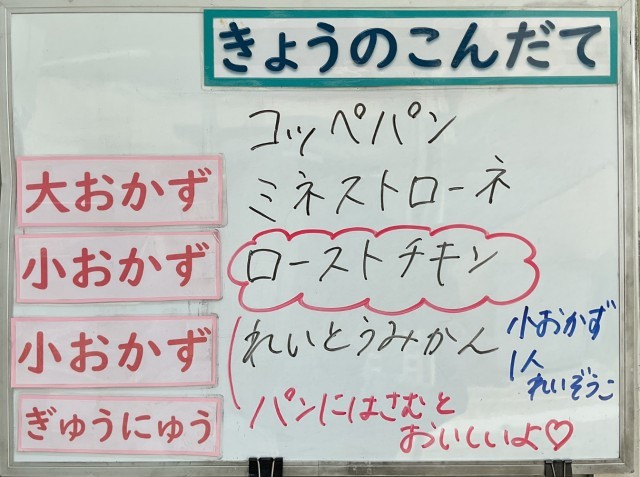 きょうのこんだて
コッペパン
大おかず ミネストローネ
小おかず ローストチキン
小おかず れいとうみかん
小おかず
1人
れいぞうこ
ぎゅうにゅう
パンにはさむと
おいしいよ♡